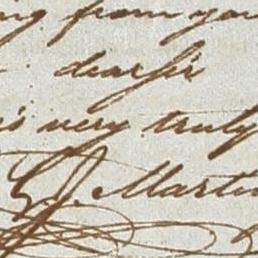 ing from you
dear sir
is very truly
G. J. Martin